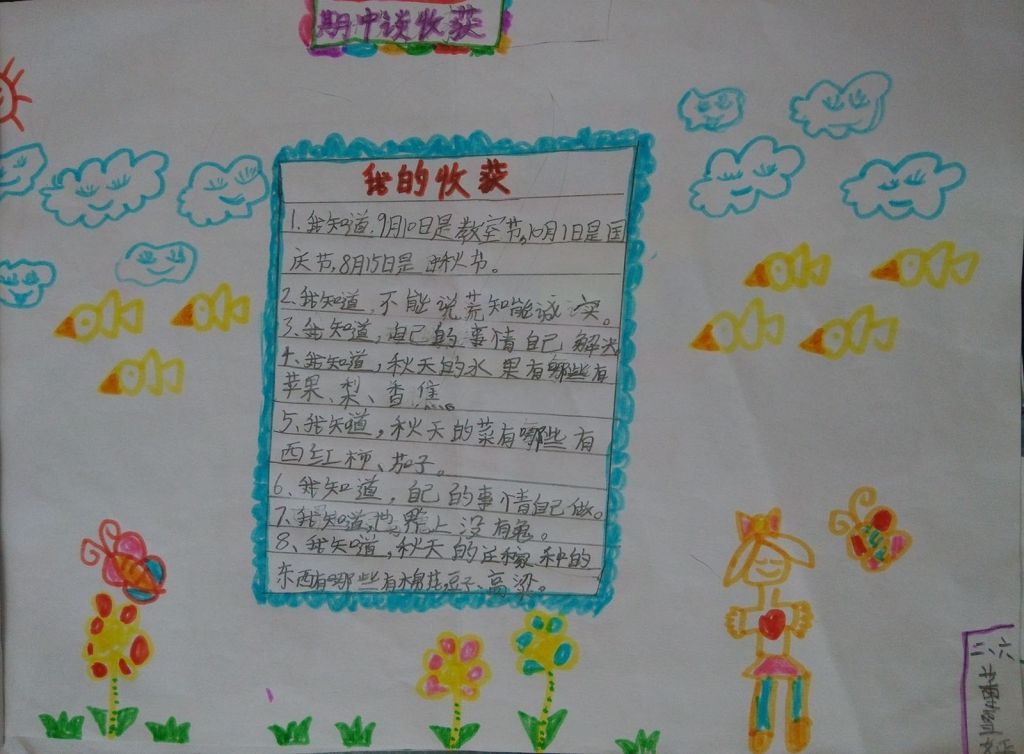 期中谈收获
我的收获
1.我知道.9月10日是教室节,10月1日是国
庆节,8月15日是 秋节。
2.我知道,不能说荒知能诚实。
3、我知道,自己的事情自己解决
4、我知道,秋天的水果有哪些有
苹果、梨、香焦
5、我知道,秋天的菜有哪些有
西红柿、茄子。
6、我知道,自己的事情自己做。
7、我知道,世界上没有鬼。
8、我知道,秋天的庄稼种的
东西有哪些有棉花豆子、高梁。
二六